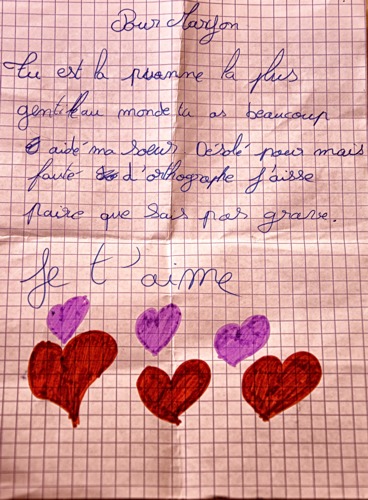 Pour Marjon
tu est la puanne la plus
gentil au monde tu as beaucoup
aidé ma soeur. Désolé pour mais
faute d'orthographe j'aisse
paire que sais pas grave.
Je t'aime